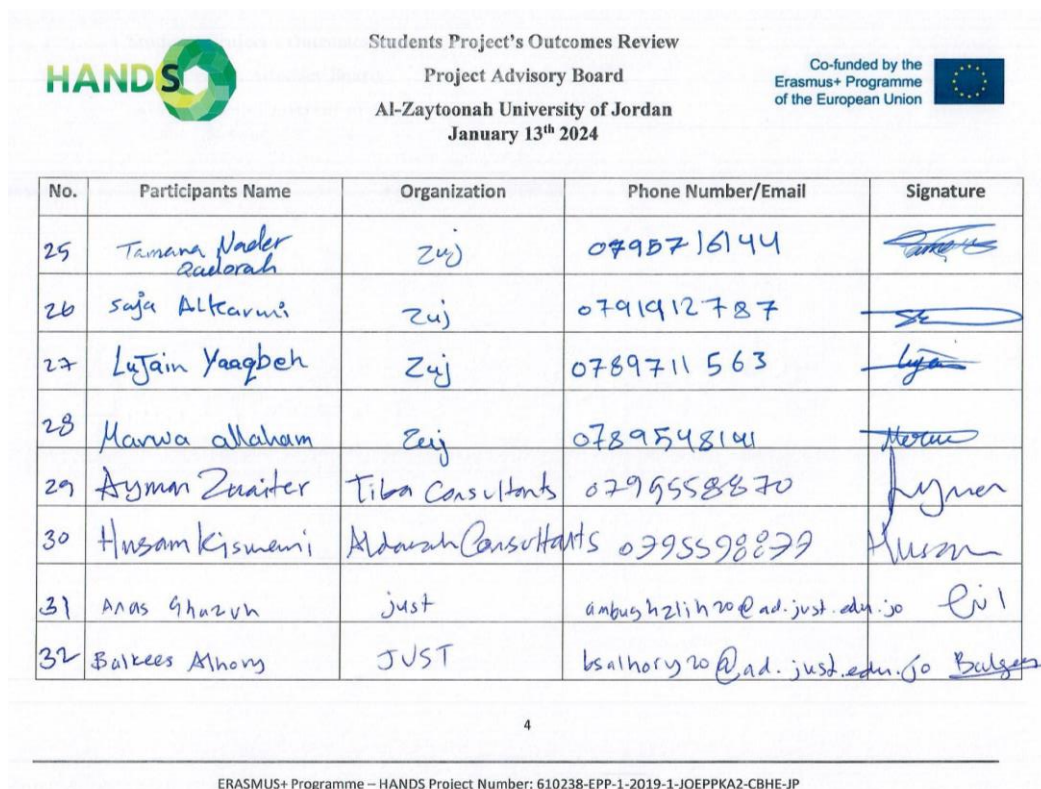 HANDS
Students Project's Outcomes Review
Project Advisory Board
Al-Zaytoonah University of Jordan
January 13th 2024
Co-funded by the
Erasmus+ Programme
of the European Union
No. Participants Name Organization Phone Number/Email Signature
25 Tamana Nader Qadorah Zuj 0795716144
26 saja Alkarmi Zuj 0791912787
27 Lujain Yaaqbeh Zuj 0789711563
28 Marwa allaham Zuj 0789548141
29 Ayman Zuaiter Tiba Consultants 0799558870 Aymen
30 Husam Kiswani Consultants Husam
31 Anas just @ad.just.edu.jo
32 Balkees Alhory JUST bsalhory20@ad.just.edu.jo Balqees
4
ERASMUS+ Programme – HANDS Project Number: 610238-EPP-1-2019-1-JOEPPKA2-CBHE-JP